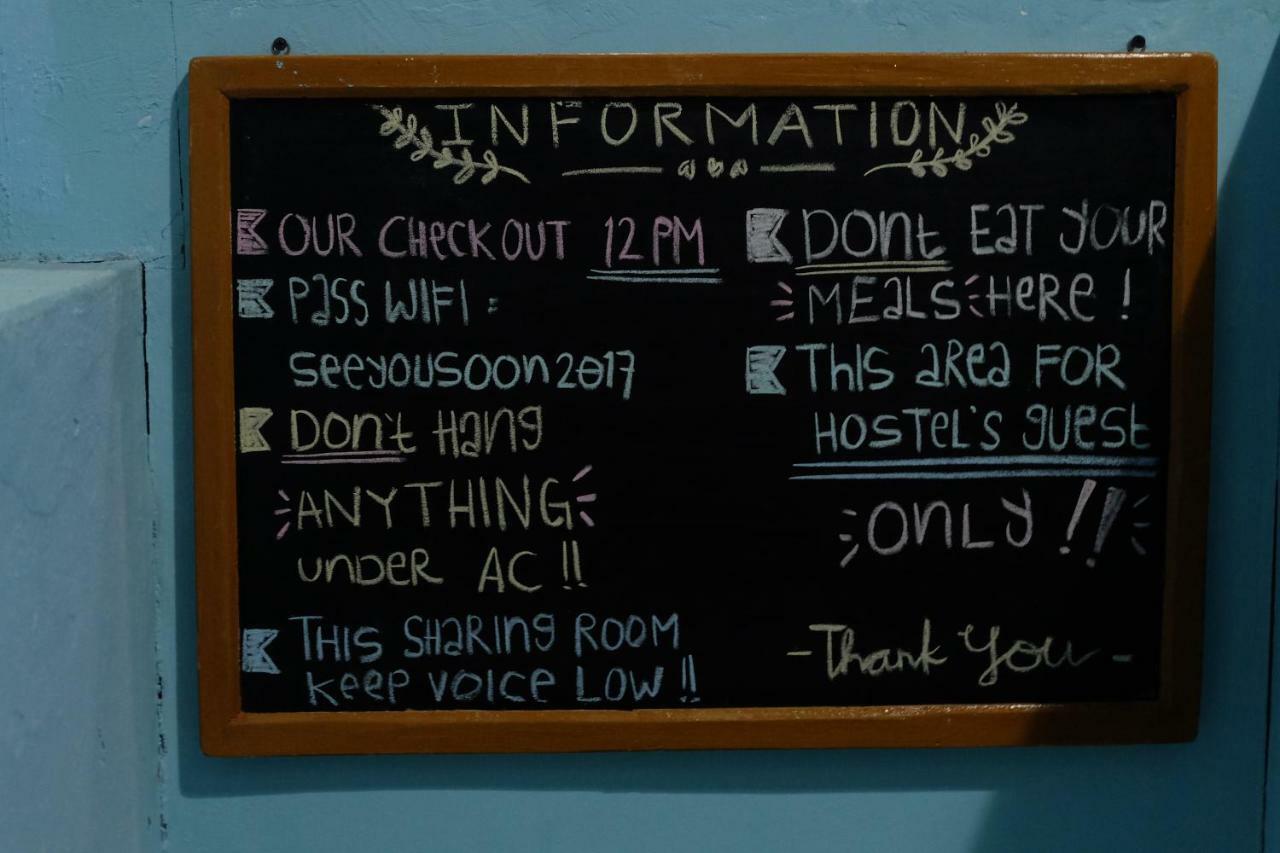 INFORMATION
OUR CHeCK OUT 12 PM
Pass WIFI :
seeyousoon2017
Don't Hang
ANYTHING
unDER AC !!
THIS SHaRing ROOM
KeeP VOICe LOW !!
DOnt EaT YOUR
MEaLS HeRe !
THIS aRea FOR
HOSTeL'S guest
OnLY !!
- Thank You -